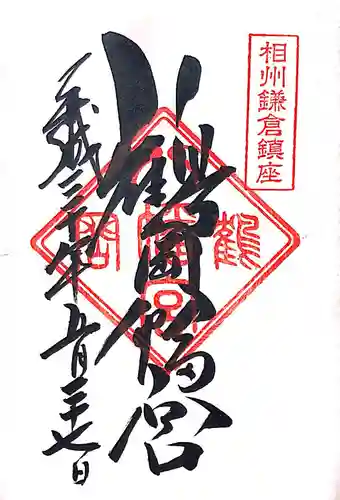 相州鎌倉鎮座
鶴岡八幡宮
平成三十年五月二十七日
鶴岡八幡宮